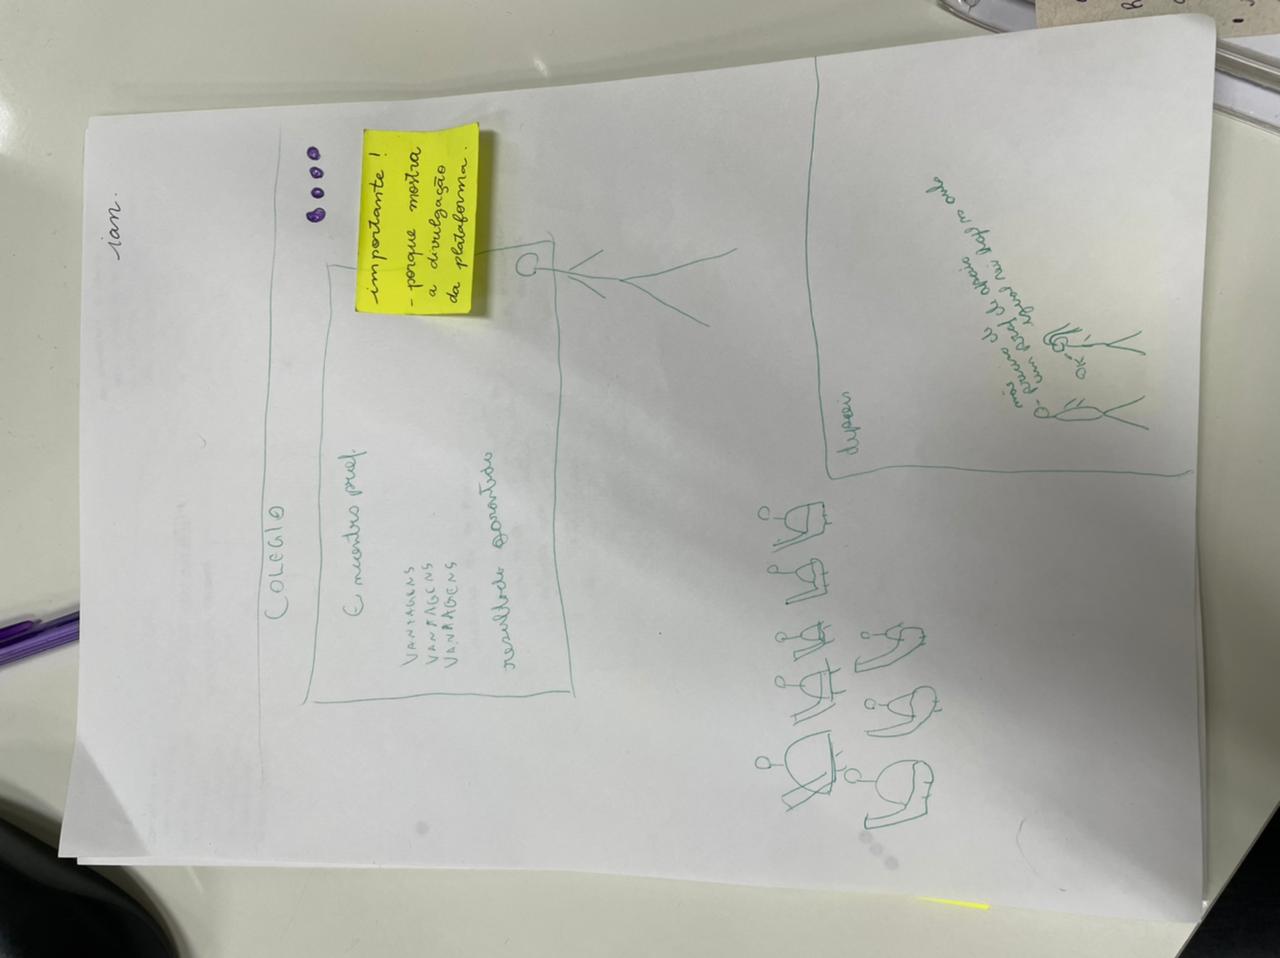 ian.
COLEGIO
Encontro prof.
VANTAGENS
VANTAGENS
VANTAGENS
resultado garantido
importante !
- porque mostra
a divulgação
da plataforma.
depois
mãe
- preciso de
um prof de apoio
igual na aula
OK -